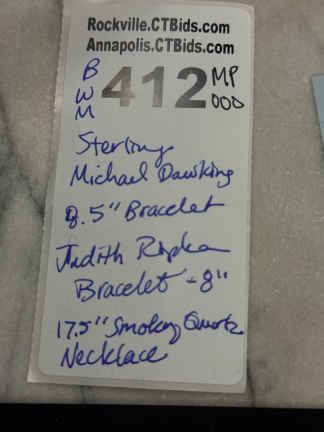 Rockville.CTBids.com
Annapolis.CTBids.com
BWM 412 MP 000
Sterling
Michael Dawking
8.5" Bracelet
Judith Ripka
Bracelet - 8"
17.5" Smokey Quartz
Necklace